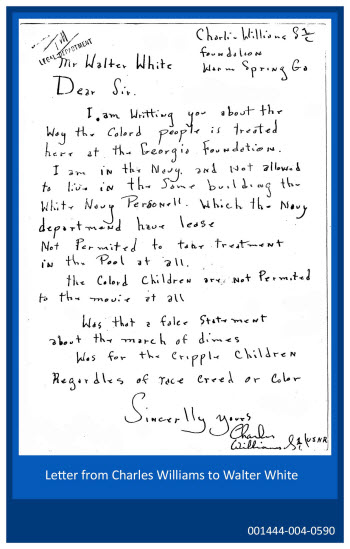 LEGAL DEPARTMENT
Charlie Williams S 1/c
Foundation
Mr Walter White
Warm Spring Ga
Dear Sir.
I am writting you about the
Way the Colord people is treated
here at the Georgia Foundation.
I am in the Navy, and Not allowed
to live in the Same building the
White Navy Personell. Which the Navy
department have lease
Not Permited to take treatment
in the Pool at all.
the Colord Children are Not Permited
to the movie at all
Was that a falce Statement
about the march of dimes
Was for the Cripple Children
Regardles of race Creed or Color
Sincerlly yours
Charles
Williams S 1/c (USNR)
Letter from Charles Williams to Walter White
001444-004-0590